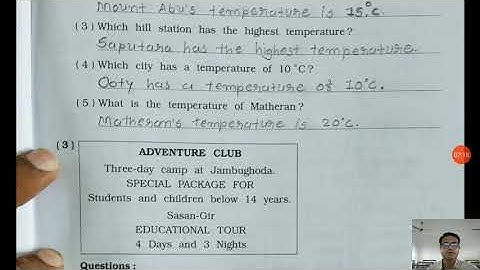 Mount Abu's temperature is 15°c.
(3) Which hill station has the highest temperature?
Saputara has the highest temperature.
(4) Which city has a temperature of 10°C?
Ooty has a temperature of 10°c.
(5) What is the temperature of Matheran?
Matheran's temperature is 20°c.
(3)
ADVENTURE CLUB
Three-day camp at Jambughoda.
SPECIAL PACKAGE FOR
Students and children below 14 years.
Sasan-Gir
EDUCATIONAL TOUR
4 Days and 3 Nights
Questions :